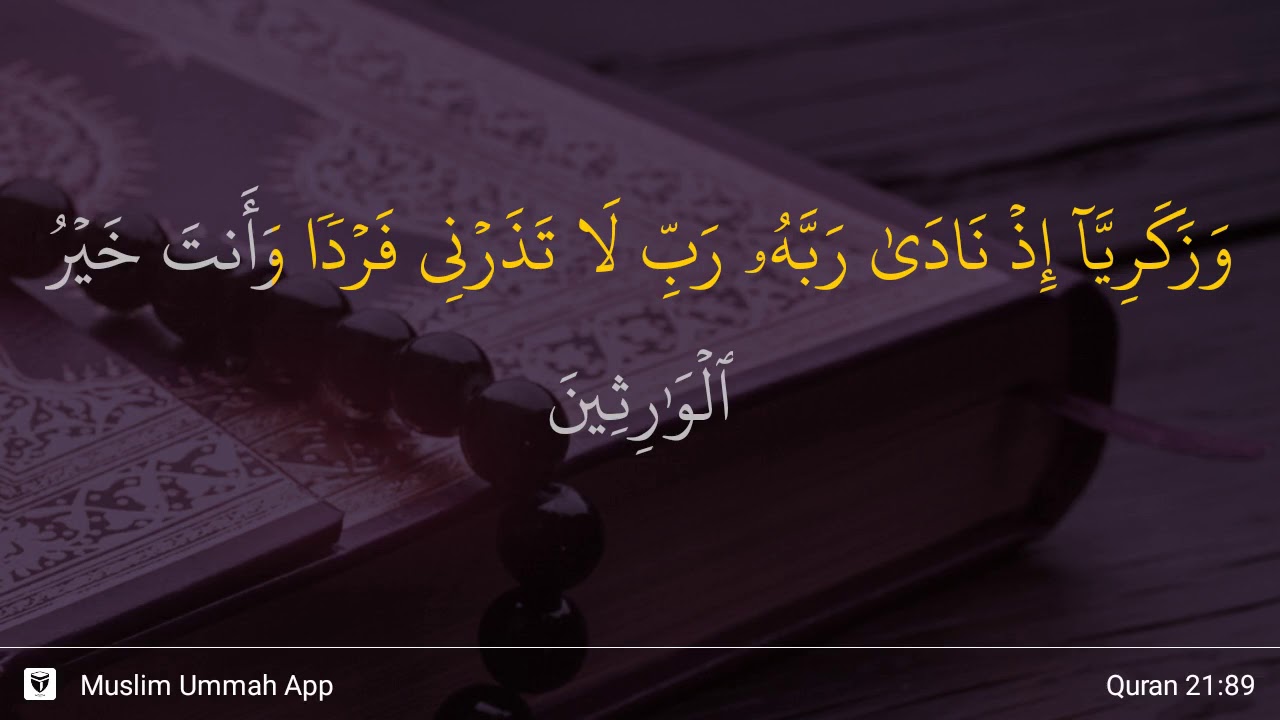 وَزَكَرِيَّآ إِذۡ نَادَىٰ رَبَّهُۥ رَبِّ لَا تَذَرۡنِى فَرۡدٗا وَأَنتَ خَيۡرُ
ٱلۡوَٰرِثِينَ
Muslim Ummah App
Quran 21:89